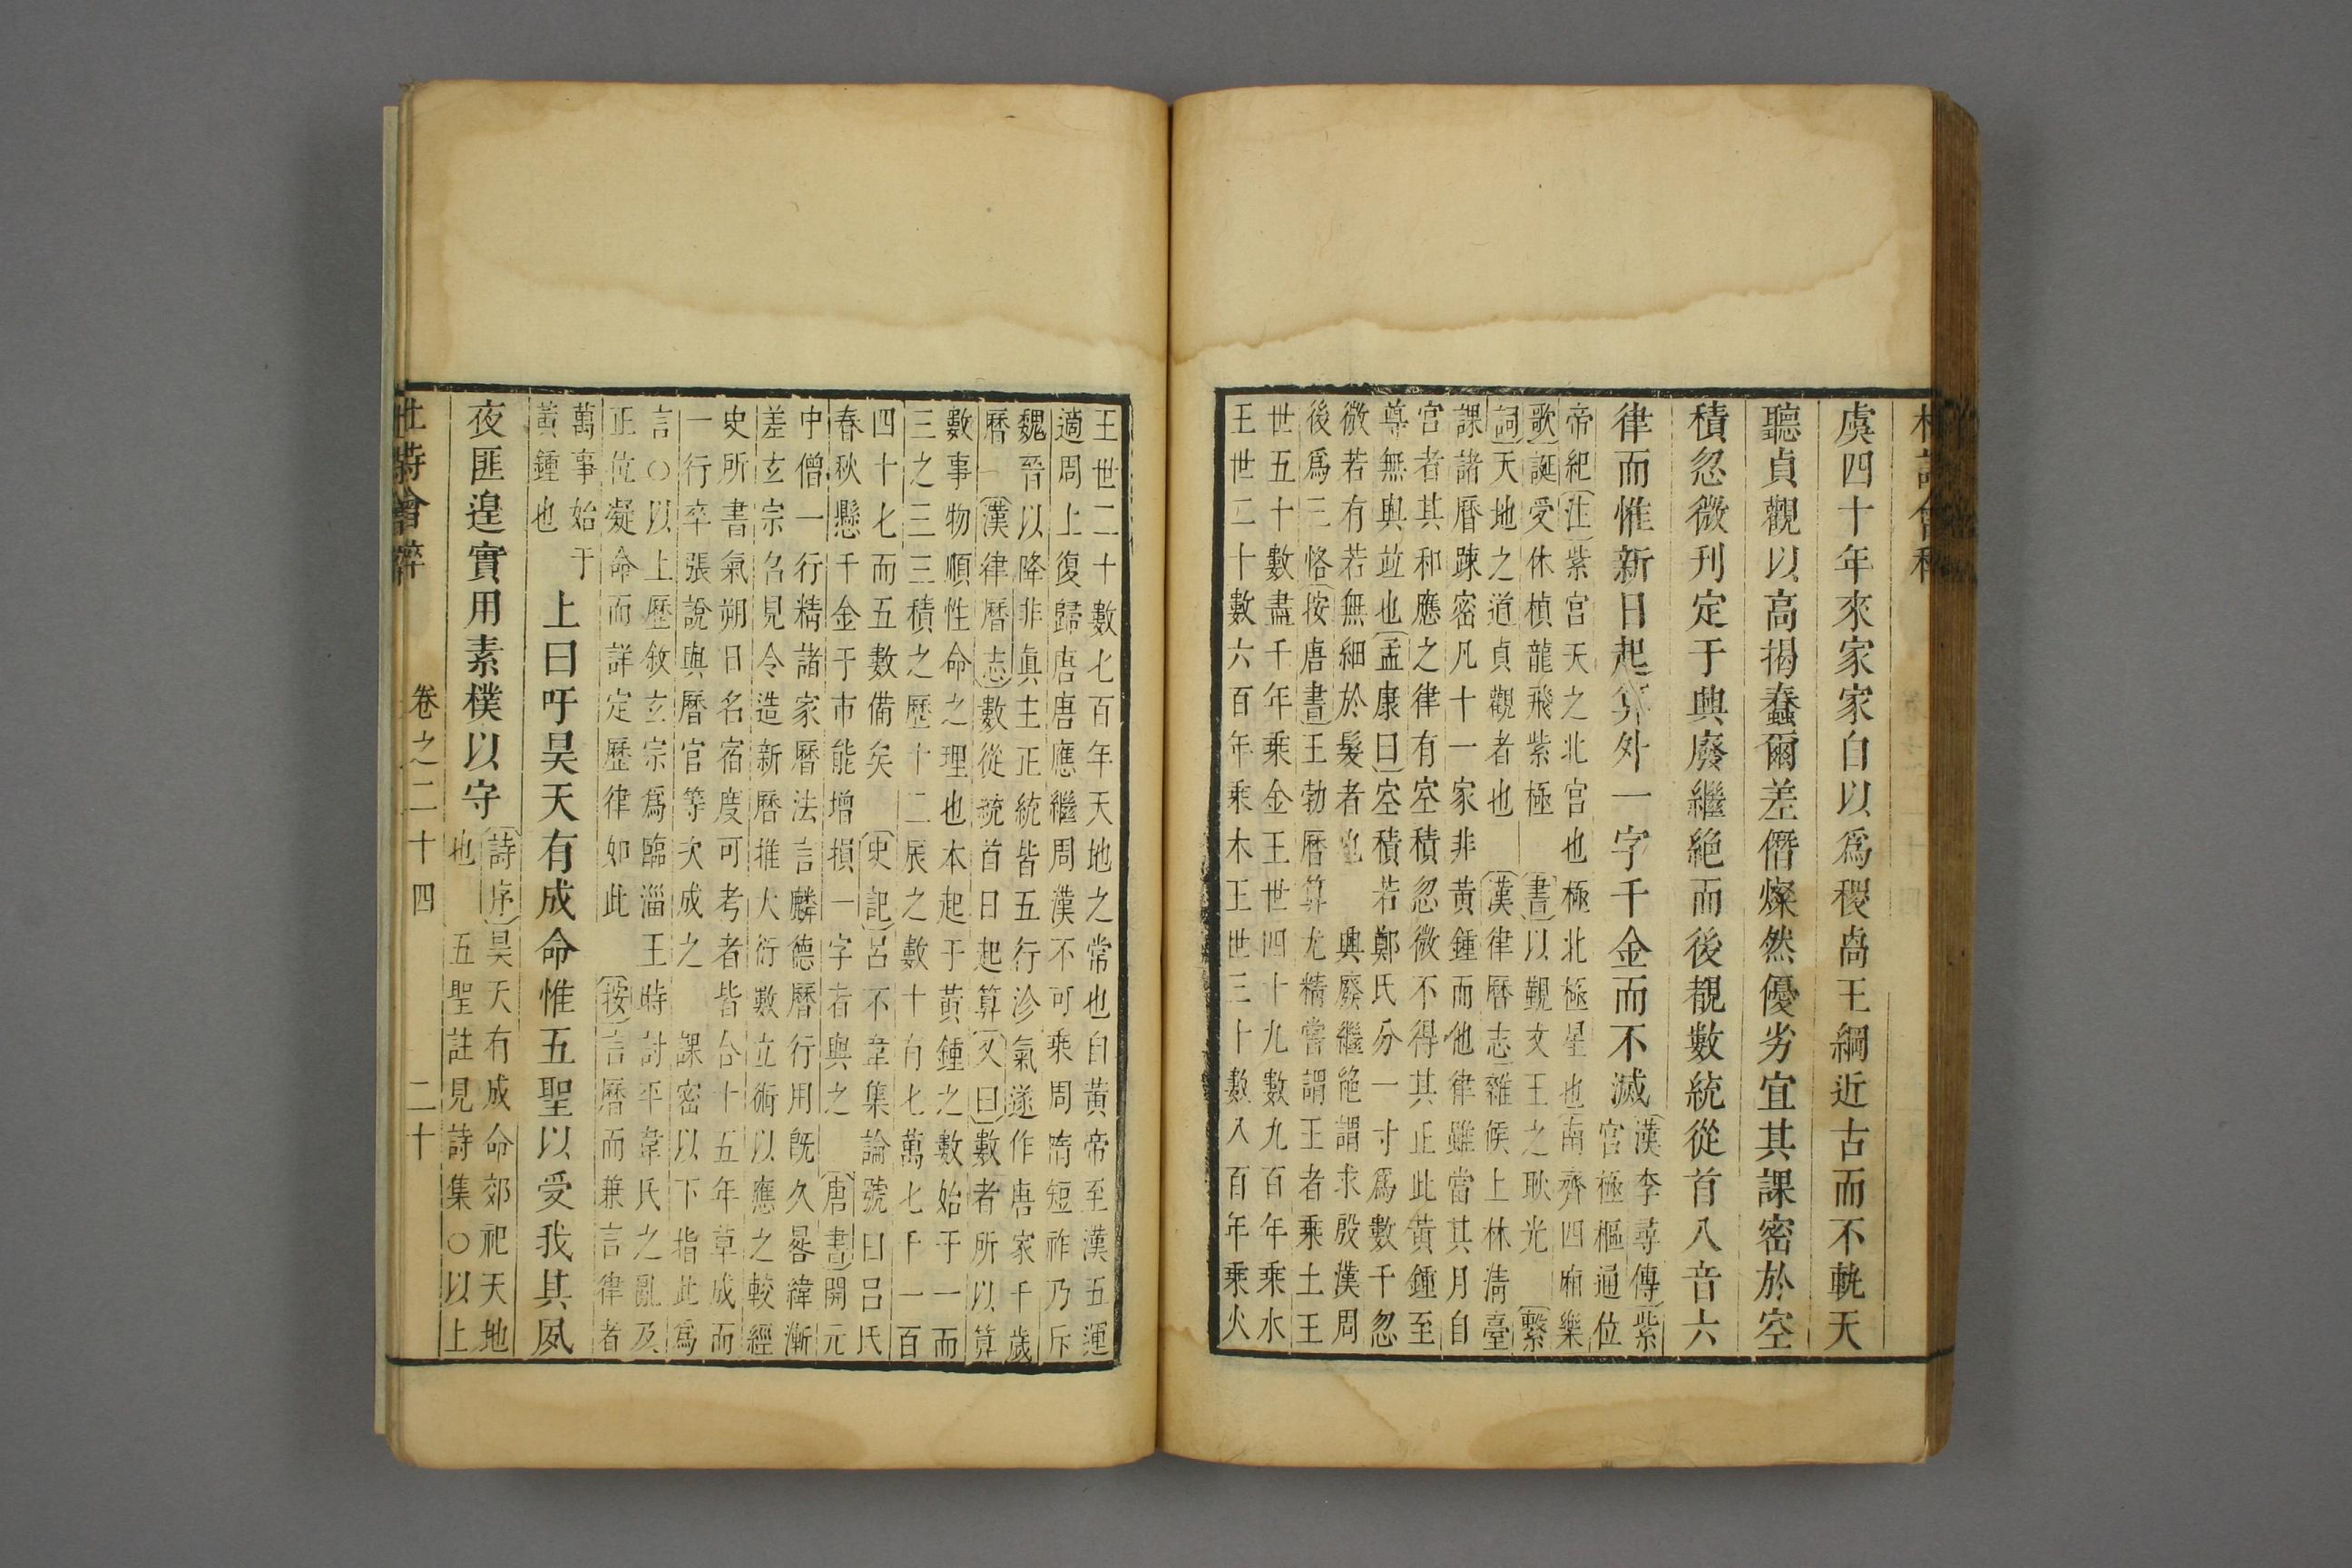 虞四十年來家家自以爲稷卨王綱近古而不軌天
聽貞觀以高揭蠢爾差僭燦然優劣宜其課密於空
積忽微刊定于興廢繼絕而後覩數統從首八音六
律而惟新日起算外一字千金而不滅
漢李尋傳紫
宮極樞通位
帝紀注紫宮天之北宮也極北極星也南齊四廂樂
歌誕受休楨龍飛紫極 書以覲文王之耿光 繫
詞天地之道貞觀者也 漢律曆志雜候上林淸臺
課諸曆踈密凡十一家非黃鍾而他律雖當其月自
宮者其和應之律有空積忽微不得其正此黃鍾至
尊無與竝也孟康曰空積若鄭氏分一寸爲數千忽
微若有若無細於髮者也 興廢繼絶謂求殷漢周
後爲三恪按唐書王勃曆算尤精嘗謂王者乘土王
世五十數盡千年乘金王世四十九數九百年乘水
王世二十數六百年乘木王世三十數八百年乘火
王世二十數七百年天地之常也自黃帝至漢五運
適周上復歸唐唐應繼周漢不可乘周隋短祚乃斥
魏晉以降非眞主正統皆五行沴氣遂作唐家千歲
曆 漢律曆志數從統首日起算又曰數者所以算
數事物順性命之理也本起于黃鍾之數始于一而
三之三三積之歷十二辰之數十有七萬七千一百
四十七而五數備矣 史記呂不韋集論號曰呂氏
春秋懸千金于市能增損一字者與之 唐書開元
中僧一行精諸家曆法言麟德曆行用旣久晷緯漸
差玄宗召見令造新曆推大衍數立術以應之較經
史所書氣朔日名宿度可考者皆合十五年草成而
一行卒張說與曆官等次成之 課密以下指此爲
言○以上歷敘玄宗爲臨淄王時討平韋氏之亂及
正位凝命而詳定歷律如此 按言曆而兼言律者
萬事始于
黃鍾也
上曰吁昊天有成命惟五聖以受我其夙
夜匪遑實用素樸以守
詩序昊天有成命郊祀天地
也 五聖註見詩集○以上
杜詩會稡 卷之二十四 二十